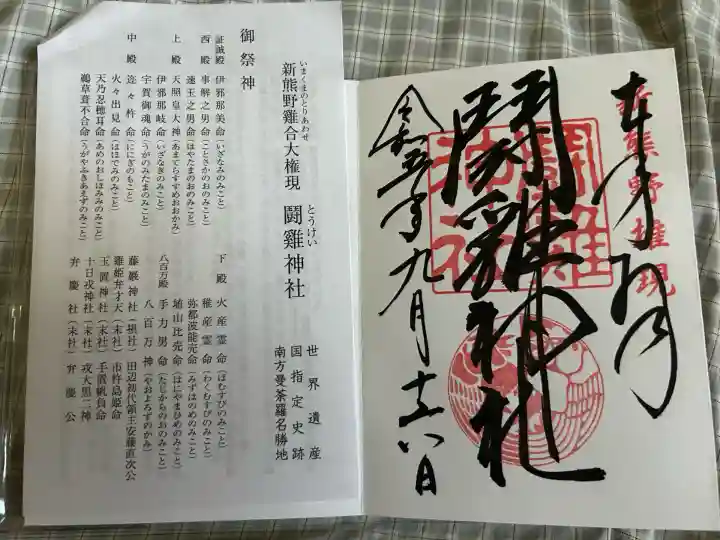 いまくまのとりあわせ
新熊野雞合大権現
とうけい
闘雞神社
世界遺産
国指定史跡
南方曼荼羅名勝地
御祭神
証誠殿 伊邪那美命(いざなみのみこと)
西殿 事解之男命(ことさかのおのみこと)
速玉之男命(はやたまのおのみこと)
上殿 天照皇大神(あまてらすすめおおかみ)
伊邪那岐命(いざなぎのみこと)
宇賀御魂命(うがのみたまのみこと)
中殿 瓊々杵命(ににぎのもこと)
火々出見命(ほほでみのみこと)
天乃忍穂耳命(あめのおしほみみのみこと)
鵜草葺不合命(うがやふきあえずのみこと)
下殿 火産霊命(ほむすびのみこと)
稚産霊命(わくむすびのみこと)
弥都波能売命(みずはのめのみこと)
埴山比売命(はにやまひめのみこと)
八百万殿 手力男命(たじからのおのみこと)
八百万神(やおよろずのかみ)
藤巌神社(摂社) 田辺初代領主安藤直次公
雞姫弁才天(末社) 市杵島姫命
玉置神社(末社) 手置帆負命
十日戎神社(末社) 戎大黒二神
弁慶社(末社) 弁慶公
奉拝
新熊野権現
闘雞神社
闘雞神社
令和五年九月十六日